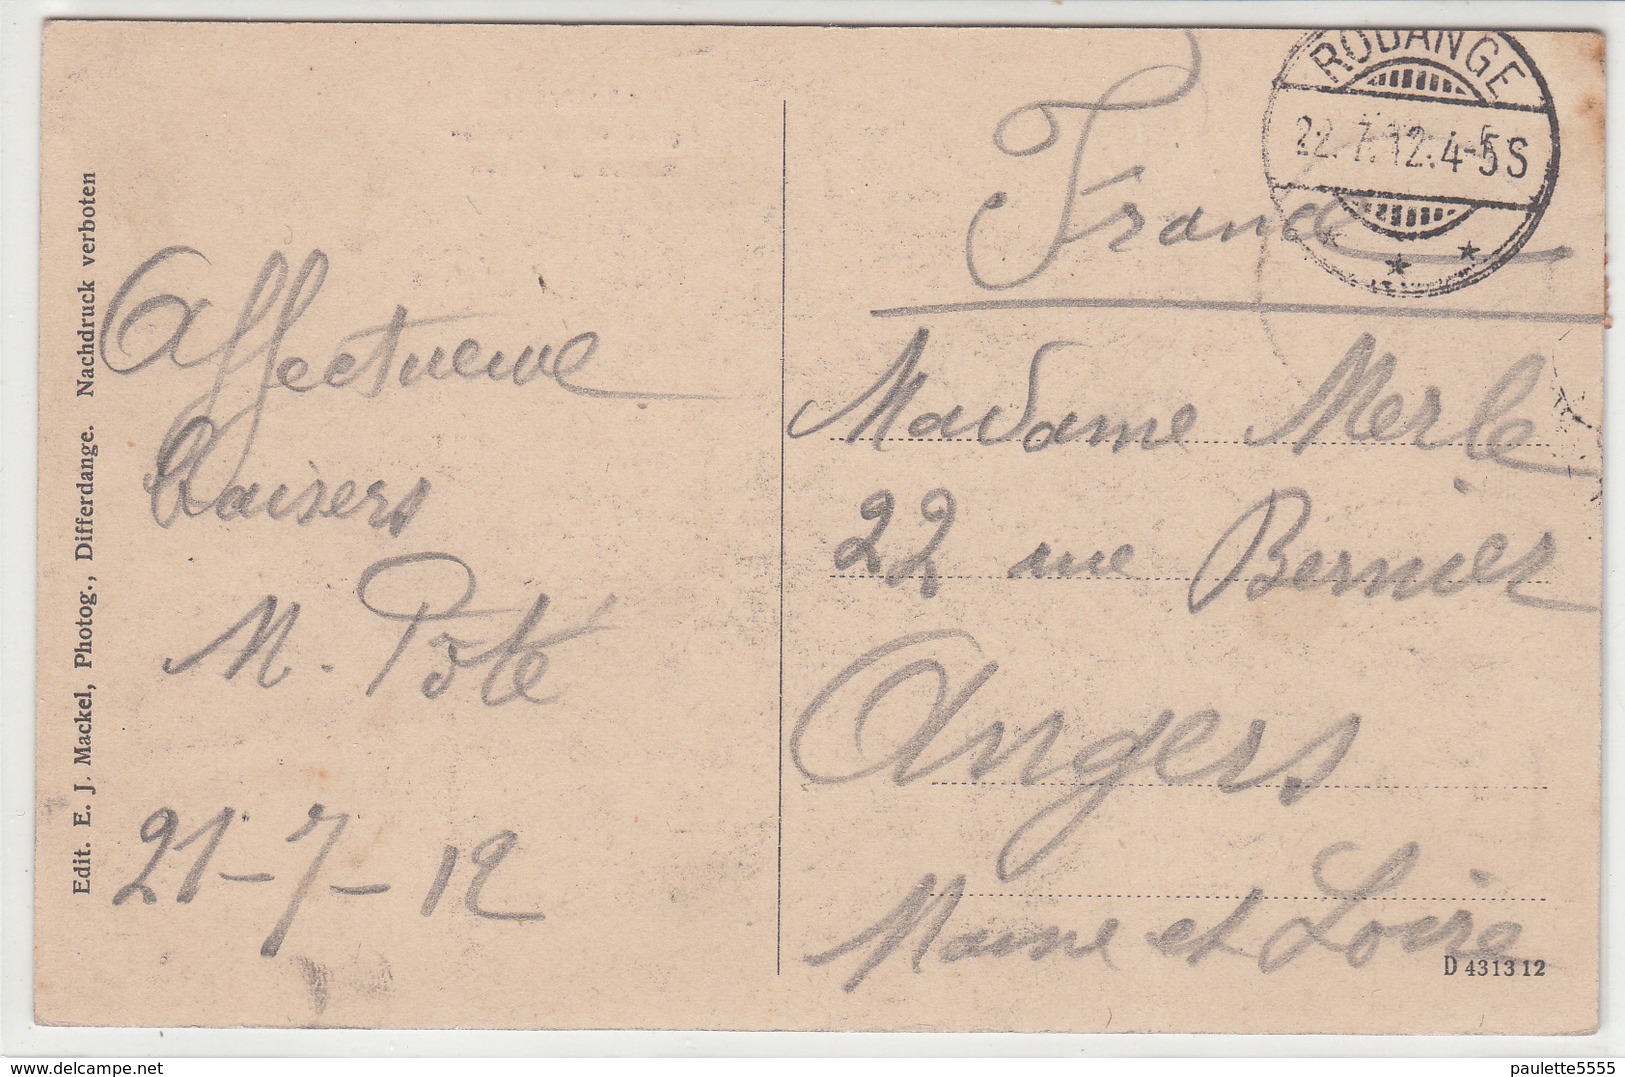 Edit. E. J. Mackel, Photog., Differdange. Nachdruck verboten
Affectueux
Baisers
M. Poté
21-7-12
RODANGE
22.7.12.4-5S
France
Madame Merle
22 rue Bernier
Angers
Maine et Loire
D 4313 12
delcampe.net
paulette5555